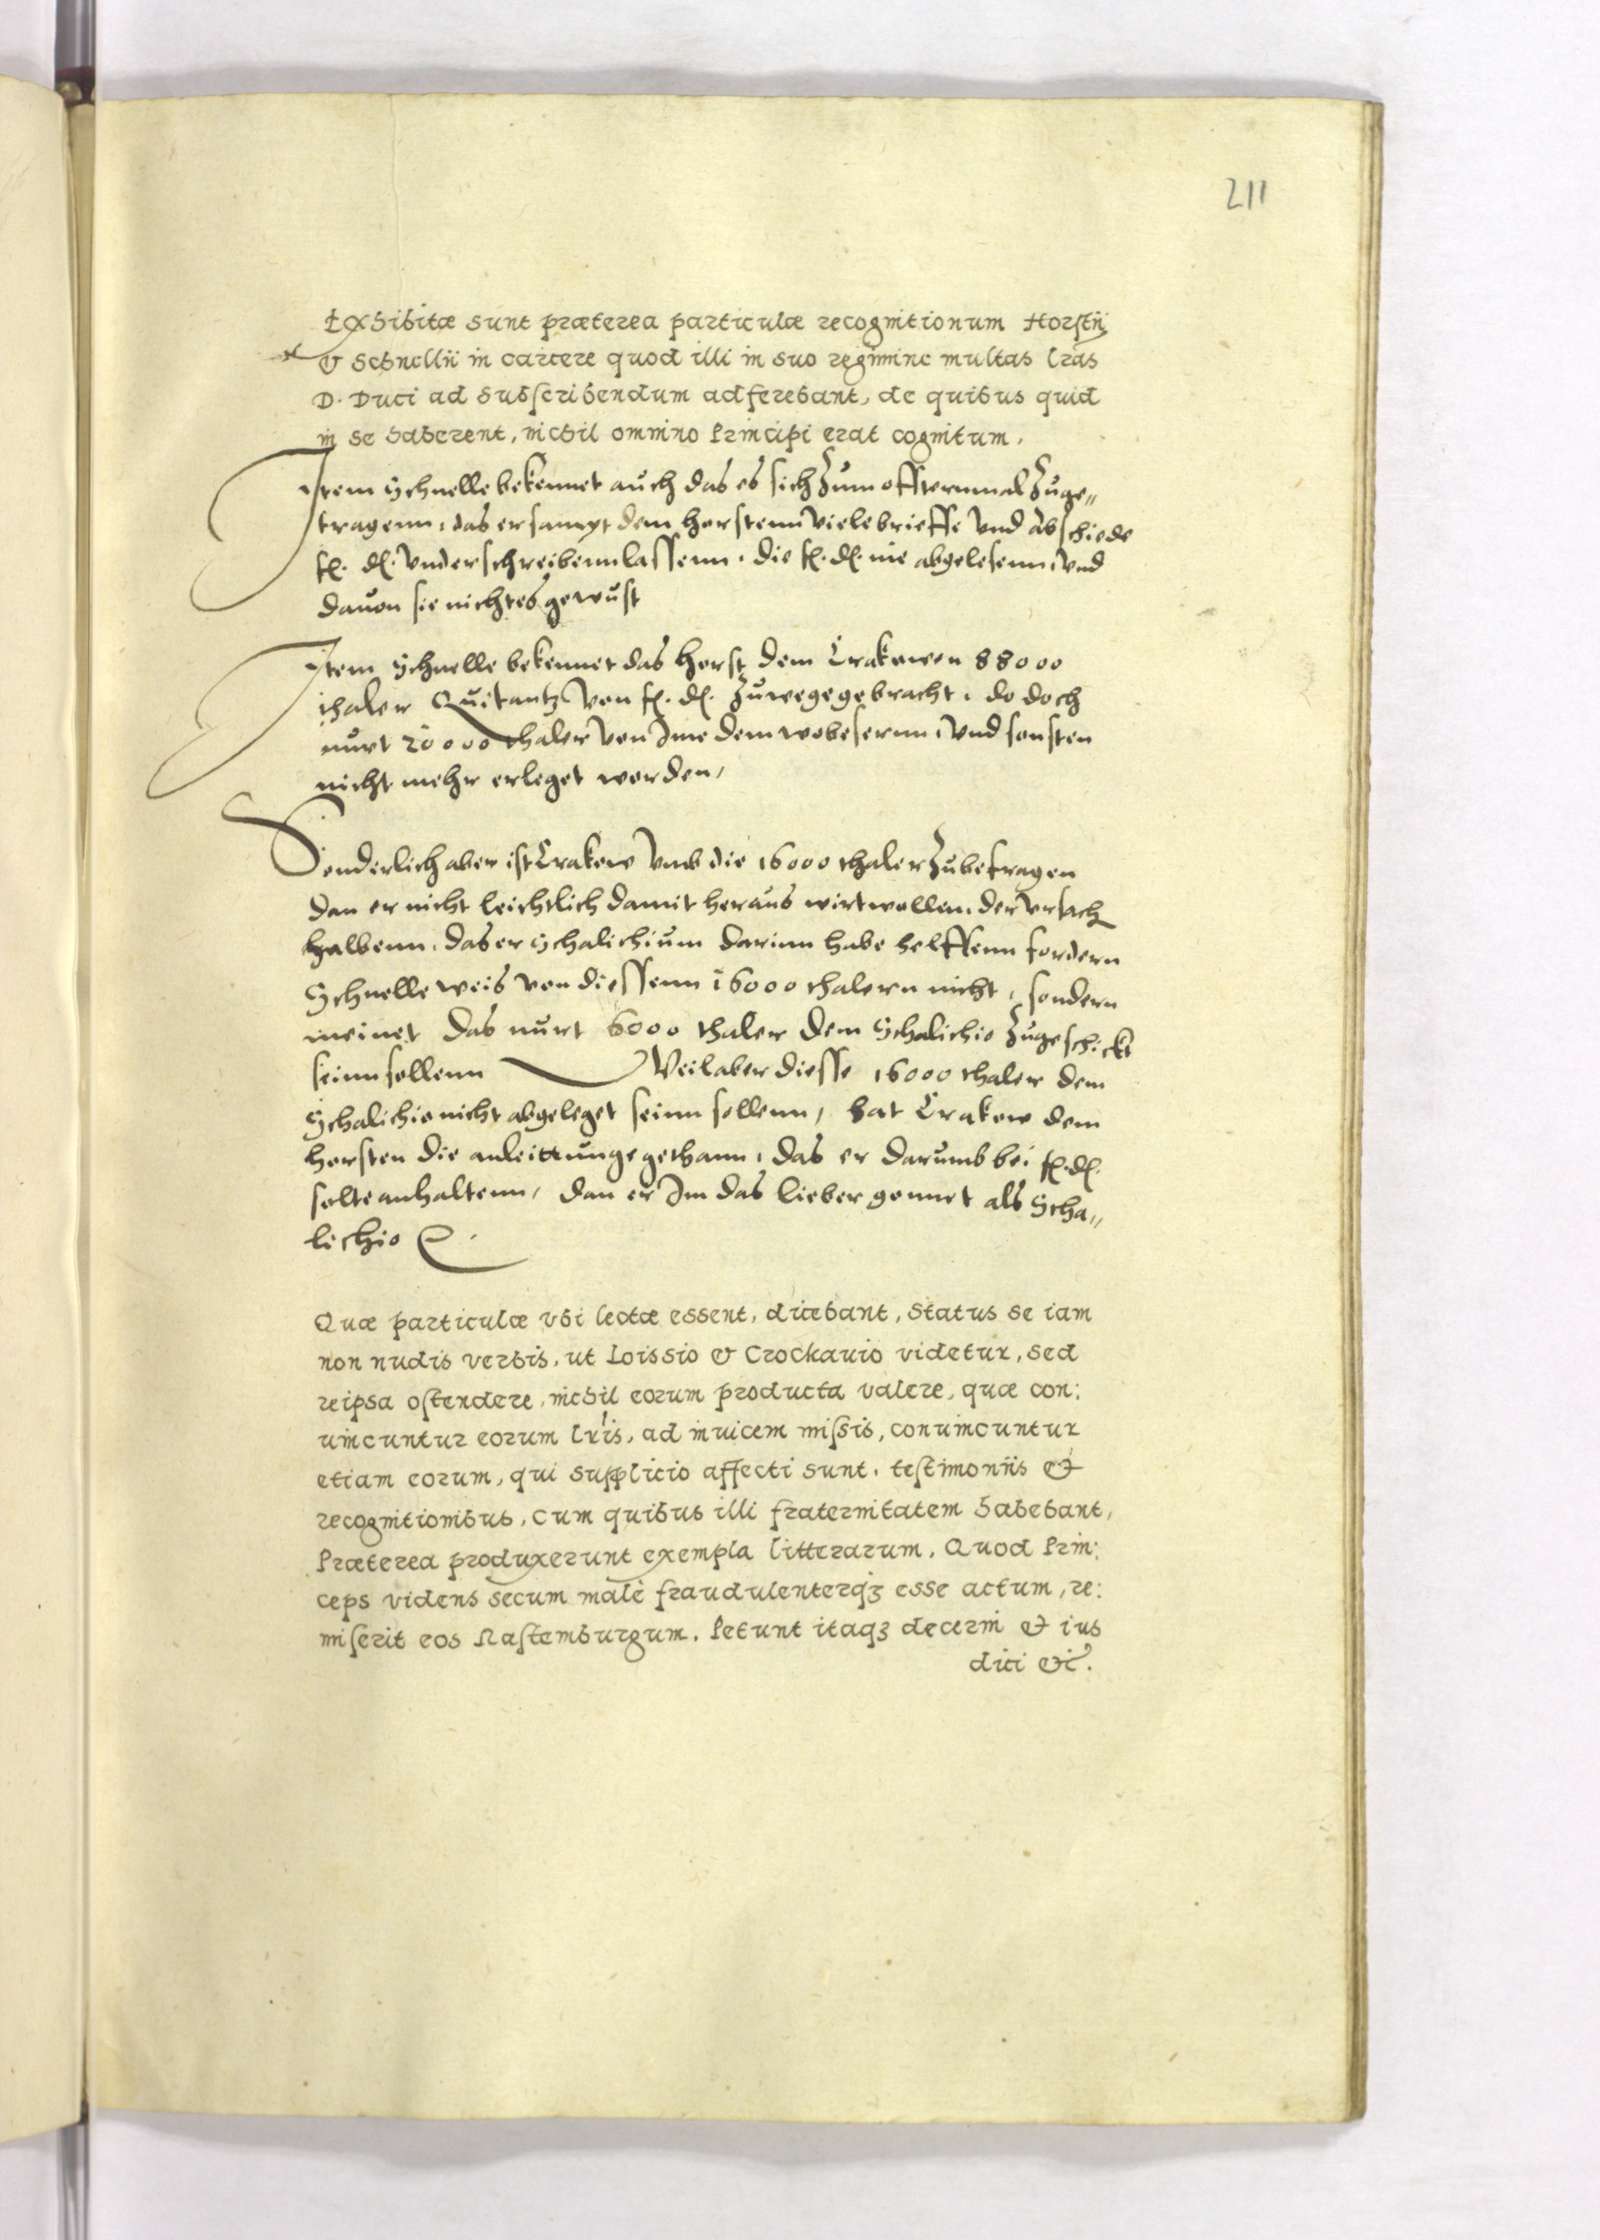 211
Exhibitæ sunt præterea particulæ recognitionum Horstii
& Schnellii in carcere quod illi in suo regimine multas lras
D. Duci ad subscribendum adferebant, de quibus quid
in se haberent, nichil omnino Principi erat cognitum.
Item Schnelle bekennet auch das es sich zum offternmal zuge„
tragenn, das er sampt dem Horstenn viele brieffe vnd abschiede
f. d. vnderschreibenn lassenn, die f. d. nie abgelesenn, vnd
dauon sie nichtes gewust
Item Schnelle bekennet das Horst dem Crakowen 88000
thaler Quitantz von f. d. zuwege gebracht, do doch
nurt 20000 thaler von Ime dem wobesernn, vnd sonsten
nicht mehr erleget worden,
Sonderlich aber ist Crakow vmb die 16000 thaler zubefragen
dan er nicht leichtlich damit heraus wirt wollen, der vrsach
halbenn, das er Schalichium darinn habe helffenn fordern
Schnelle weis von diessenn 16000 thalern nicht, sondern
meinet das nurt 6000 thaler dem Schalichio zugeschickt
seinn sollenn Weil aber diesse 16000 thaler dem
Schalichio nicht abgeleget seinn sollenn, hat Crakow dem
Horsten die anleittunge gethann, das er darumb bei f. d.
solte anhaltenn, dan er Im das lieber gonnet als Scha„
lichio
Quæ particulæ vbi lectæ essent, dicebant, Status se iam
non nudis verbis, ut Loissio & Crockauio videtur, sed
reipsa ostendere, nichil eorum producta valere, quæ con:
uincuntur eorum lris, ad inuicem missis, conuincuntur
etiam eorum, qui supplicio affecti sunt, testimoniis &
recognitionibus, Cum quibus illi fraternitatem habebant,
Præterea produxerunt exempla litterarum, Quod Prin:
ceps videns secum malè fraudulenterq₃ esse actum, re:
miserit eos Rastemburgum. Petunt itaq₃ decerni & ius
dici &c.